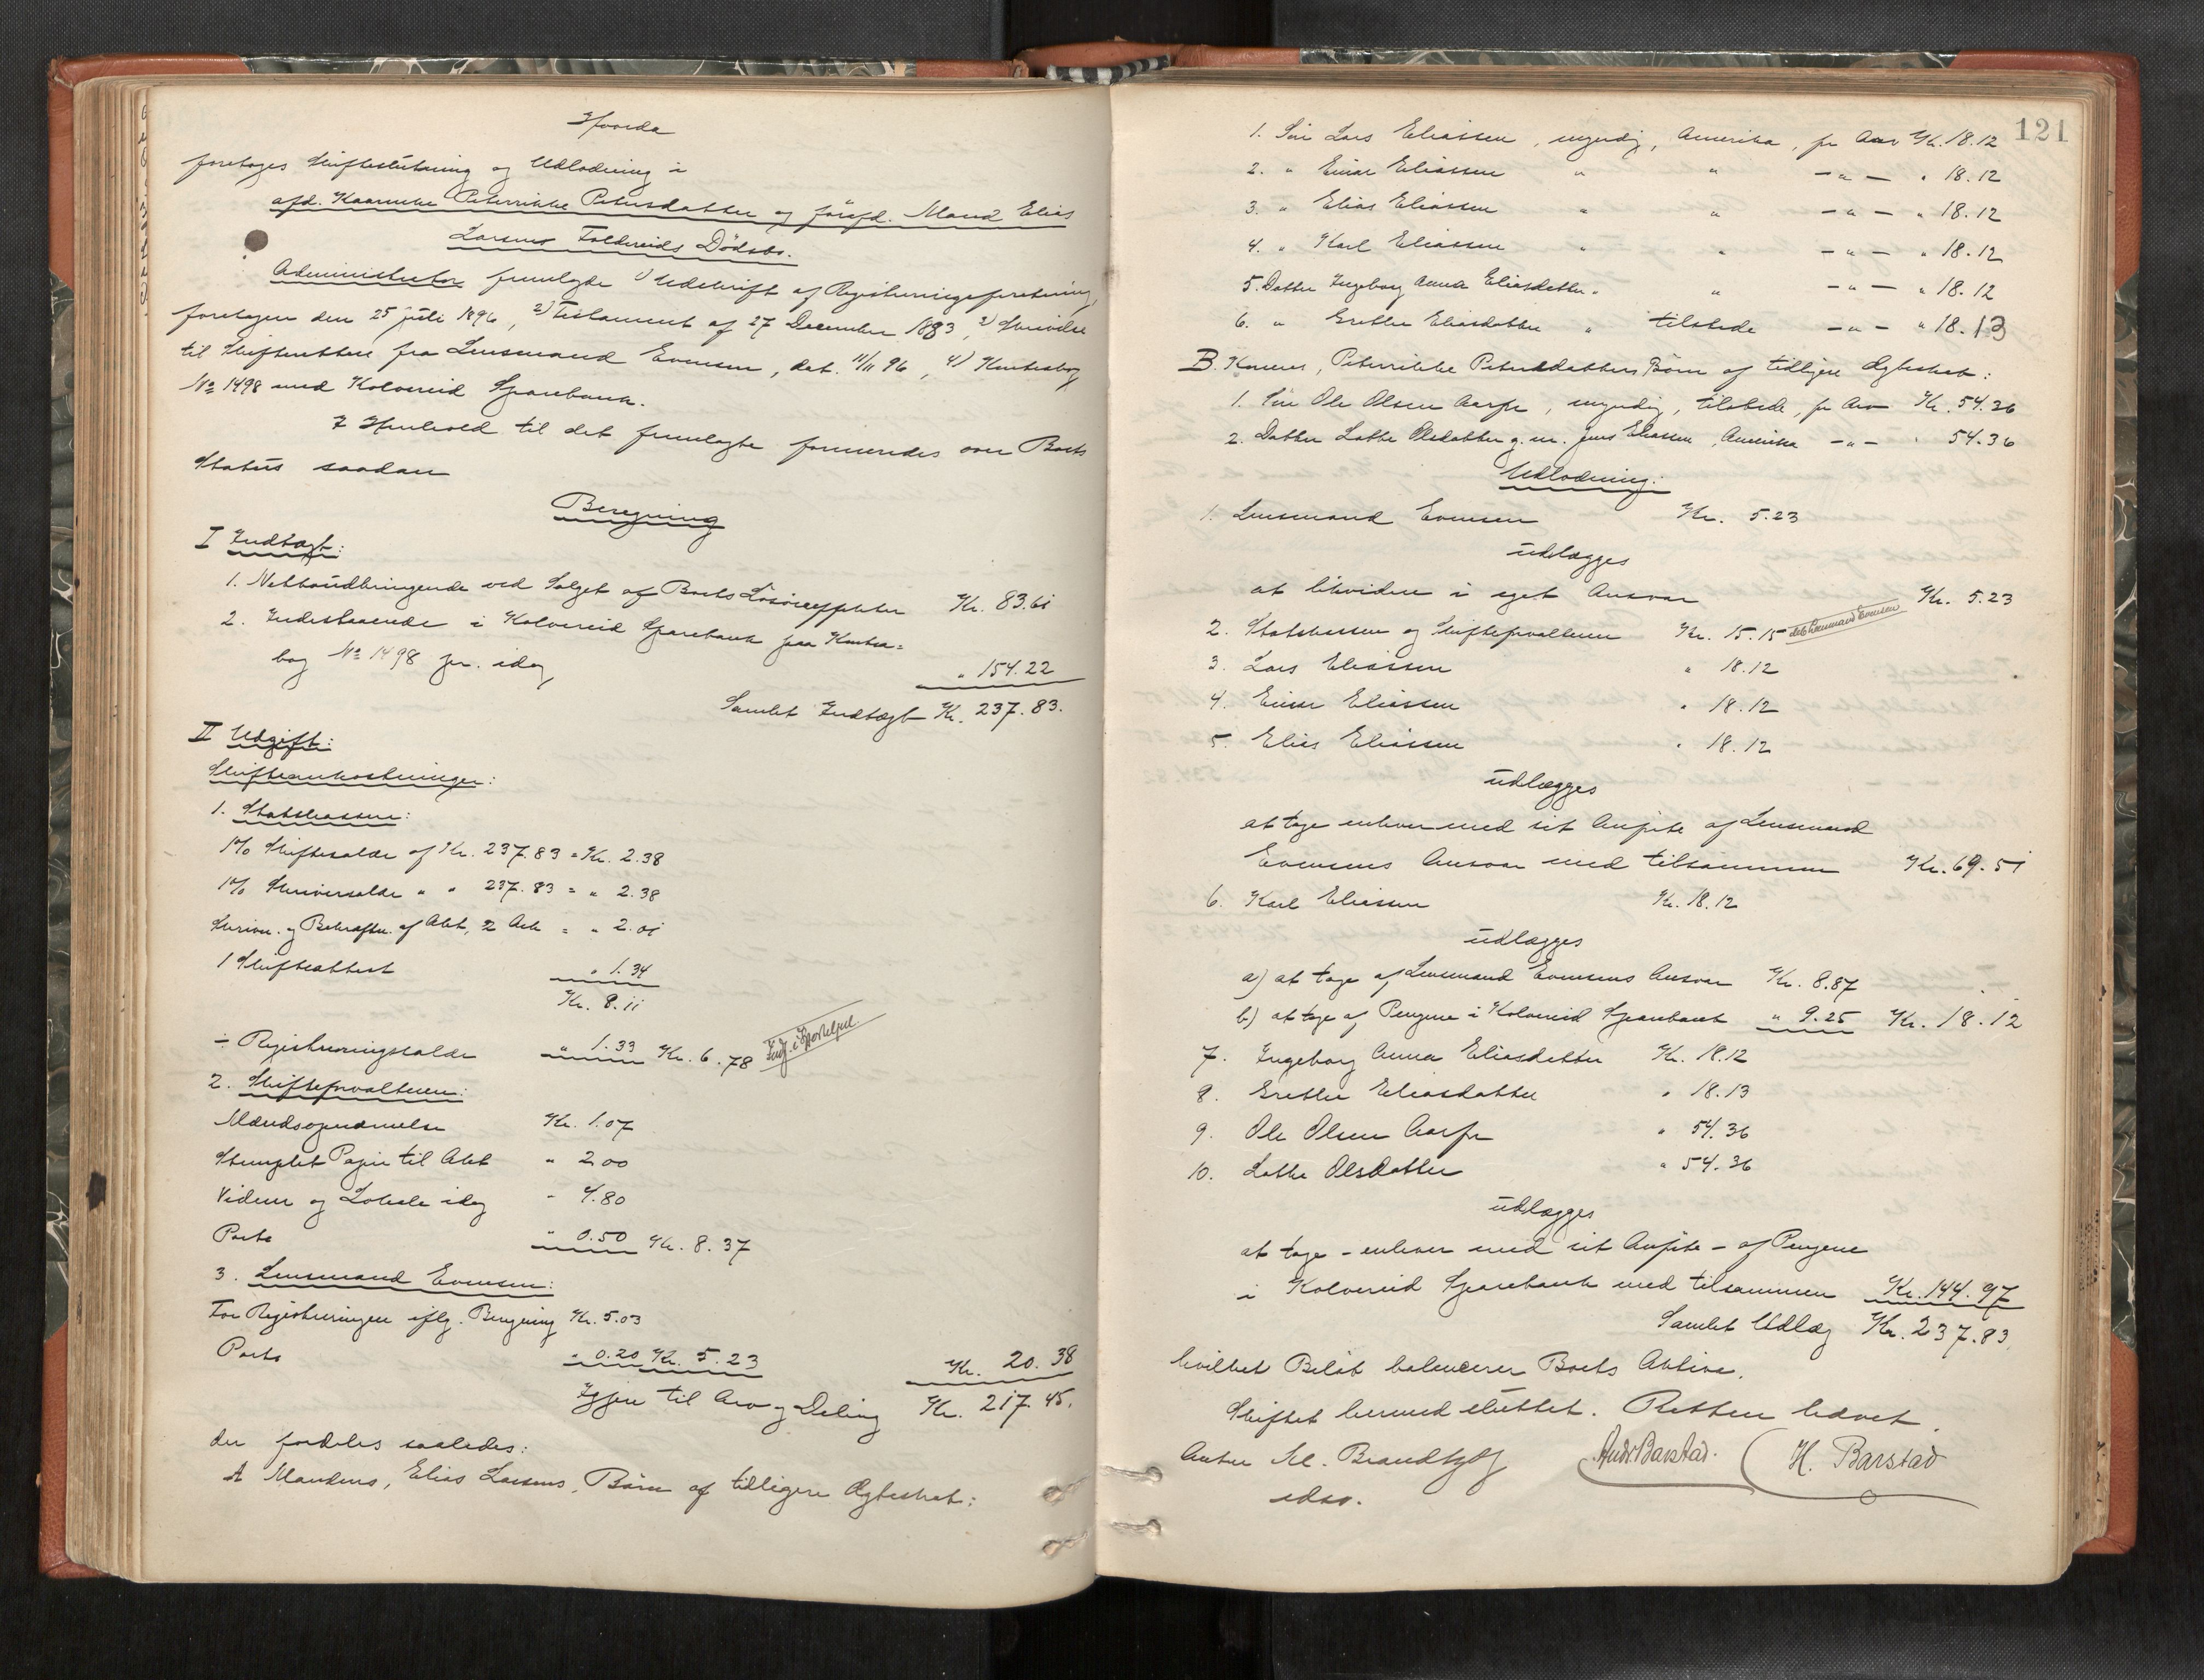 Hvorda
foretoges Skifteslutning og Udlodning i
afd. Kaarenke Peterrikke Petersdatter og førafd. Mand Elias
Larsens Foldereids Dødsbo.
Administrator fremlagde 1) Udskrift af Registreringsforretning,
foretagen den 25 juli 1896, 2) Testament af 27 December 1883, 3) Skrivelse
til Skifteretten fra Lensmand Evensen, dat. 11/11 96, 4) Kontrabog
No 1498 med Kolvereid Sparebank.
I Henhold til det fremlagte formeredes over Boets
Status saadan
Beregning
I Indtægt:
1. Nettoudbringende ved Salget af Boets Løsøreeffekter Kr. 83.61
2. Indestaaende i Kolvereid Sparebank paa Kontra=
bog No 1498 pr. idag " 154.22
Samlet Indtægt Kr. 237.83.
II Udgift:
Skifteomkostninger:
1. Statskassen:
1% Skiftesalær af Kr. 237.83 = Kr. 2.38
1% Skriversalær " " 237.83 = " 2.38
Skrivn. og Bekræftn. af Akt, 2 Ark = " 2.01
1 Skifteattest " 1.34
Kr. 8.11
÷ Registreringssalær " 1.33 Kr. 6.78 Indf. i Sporteljnl
2. Skifteforvalteren:
Mændsopnævnelse Kr. 1.07
Stemplet Papir til Akt " 2.00
Vidner og Lokale idag " 4.80
Porto " 0.50 Kr. 8.37
3. Lensmand Evensen:
For Registreringen iflg. Beregning Kr. 5.03
Porto " 0.20 Kr. 5.23 Kr. 20.38
Igjen til Arv og Deling Kr. 217.45.
der fordeles saaledes:
A Mandens, Elias Larsens, Børn af tidligere Ægteskab:
121
1. Søn Lars Eliassen, myndig, Amerika, for Arv Kr. 18.12
2. " Einar Eliassen " " — " — " 18.12
3. " Elias Eliassen " " — " — " 18.12
4. " Karl Eliassen " " — " — " 18.12
5. Datter Ingeborg Anna Eliasdatter " " — " — " 18.12
6. " Grethe Eliasdatter " tilstede — " — " 18.13
B. Konens, Peterrikke Petersdatters Børn af tidligere Ægteskab:
1. Søn Ole Olsen Aarfor, myndig, tilstede, for Arv Kr. 54.36
2. Datter Lotte Olsdatter g. m. Jens Eliassen, Amerika — " — " 54.36
Udlodning:
1. Lensmand Evensen Kr. 5.23
udlægges
at likvidere i eget Ansvar Kr. 5.23
2. Statskassen og Skifteforvalteren Kr. 15.15 deb. Lensmand Evensen
3. Lars Eliassen " 18.12
4. Einar Eliassen " 18.12
5. Elias Eliassen " 18.12
udlægges
at tage enhver med sit Anførte af Lensmand
Evensens Ansvar med tilsammen Kr. 69.51
6. Karl Eliassen Kr. 18.12
udlægges
a) at tage af Lensmand Evensens Ansvar Kr. 8.87
b) at tage af Pengene i Kolvereid Sparebank " 9.25 Kr. 18.12
7. Ingeborg Anna Eliasdatter Kr. 18.12
8. Grethe Eliasdatter " 18.13
9. Ole Olsen Aarfor " 54.36
10. Lotte Olsdatter " 54.36
udlægges
at tage - enhver med sit Anførte - af Pengene
i Kolvereid Sparebank med tilsammen Kr. 144.97
Samlet Udlæg Kr. 237.83.
hvilket Beløb balancerer Boets Aktiva.
Skiftet hermed sluttet. Retten hævet.
Anton M. Brandtzæg Andr. Barstad. H. Barstad
edsv.